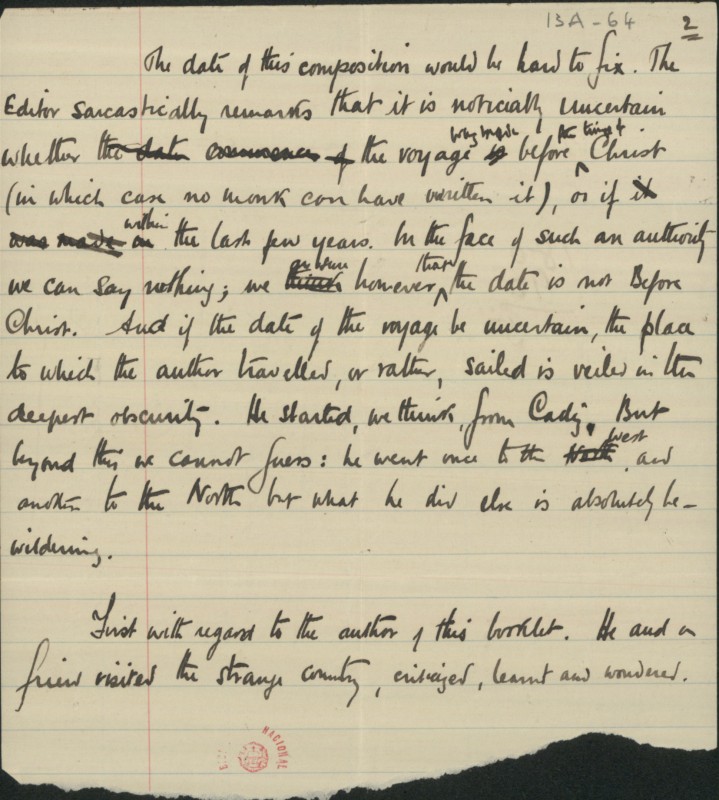 13A-64 2
The date of this composition would be hard to fix. The
Editor sarcastically remarks that it is noticially uncertain
whether the date commences of the voyage is before, Christ
(in which case no monk can have written it), or if it
was made on within the last few years. In the face of such an authority
we can say nothing; we think however, that the date is not Before
Christ. And if the date of the voyage be uncertain, the place
to which the author travelled, or rather, sailed is veiled in the
deepest obscurity. He started, we think, from Cadiz. But
beyond this we cannot guess: he went once to the North West, and
another to the North but what he did else is absolutely be-
wildering.
First with regard to the author of this booklet. He and a
friend visited the strange country, criticized, learnt and wondered.
NACIONAL